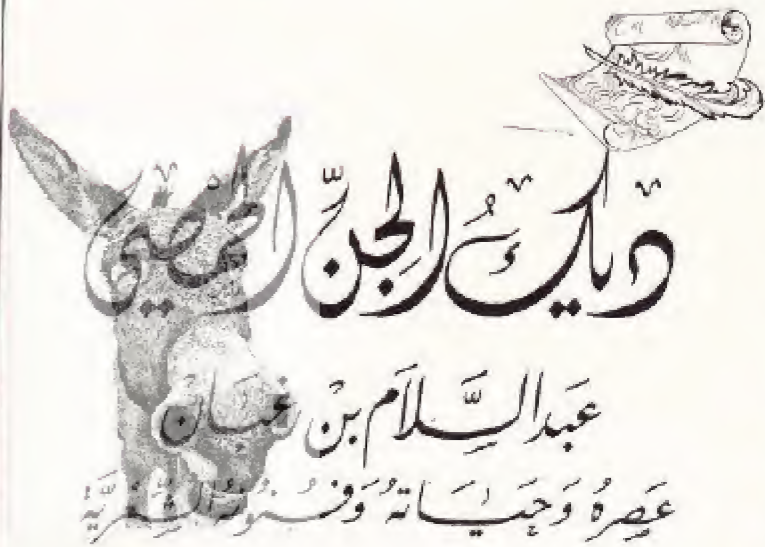 ديكُ الجِنّ الحمصيّ
عَبدالسَّلاَم بن رغبَان
عَصرهُ وَحيَاتهُ وَفنُونهُ الشِّعريَّة